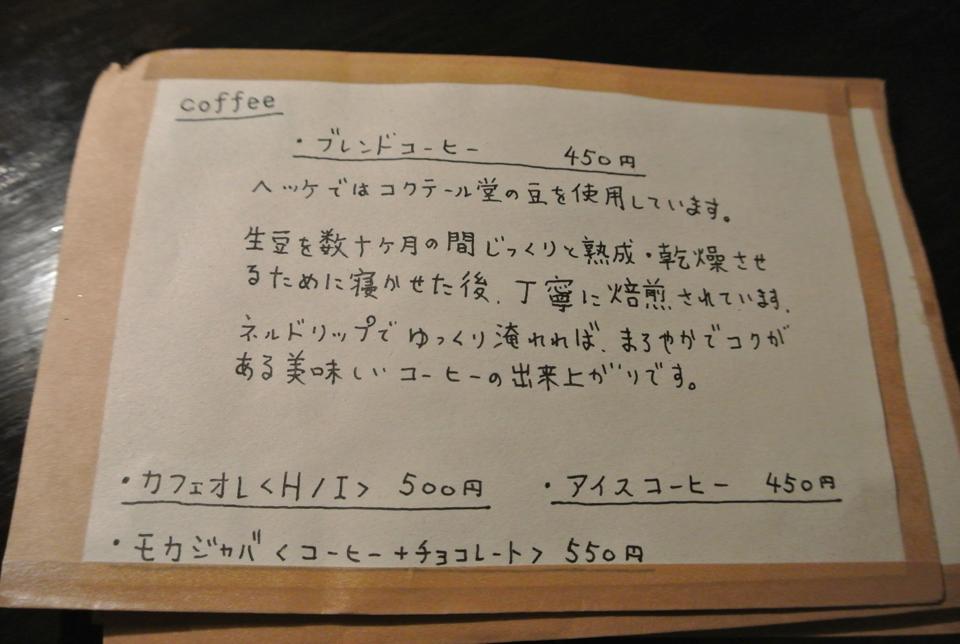 coffee
・ブレンドコーヒー 450円
ヘッケではコクテール堂の豆を使用しています。
生豆を数十ケ月の間じっくりと熟成・乾燥させ
るために寝かせた後、丁寧に焙煎されています。
ネルドリップでゆっくり淹れれば、まろやかでコクが
ある美味しいコーヒーの出来上がりです。
・カフェオレ<H/I> 500円 ・アイスコーヒー 450円
・モカジャバ<コーヒー+チョコレート> 550円